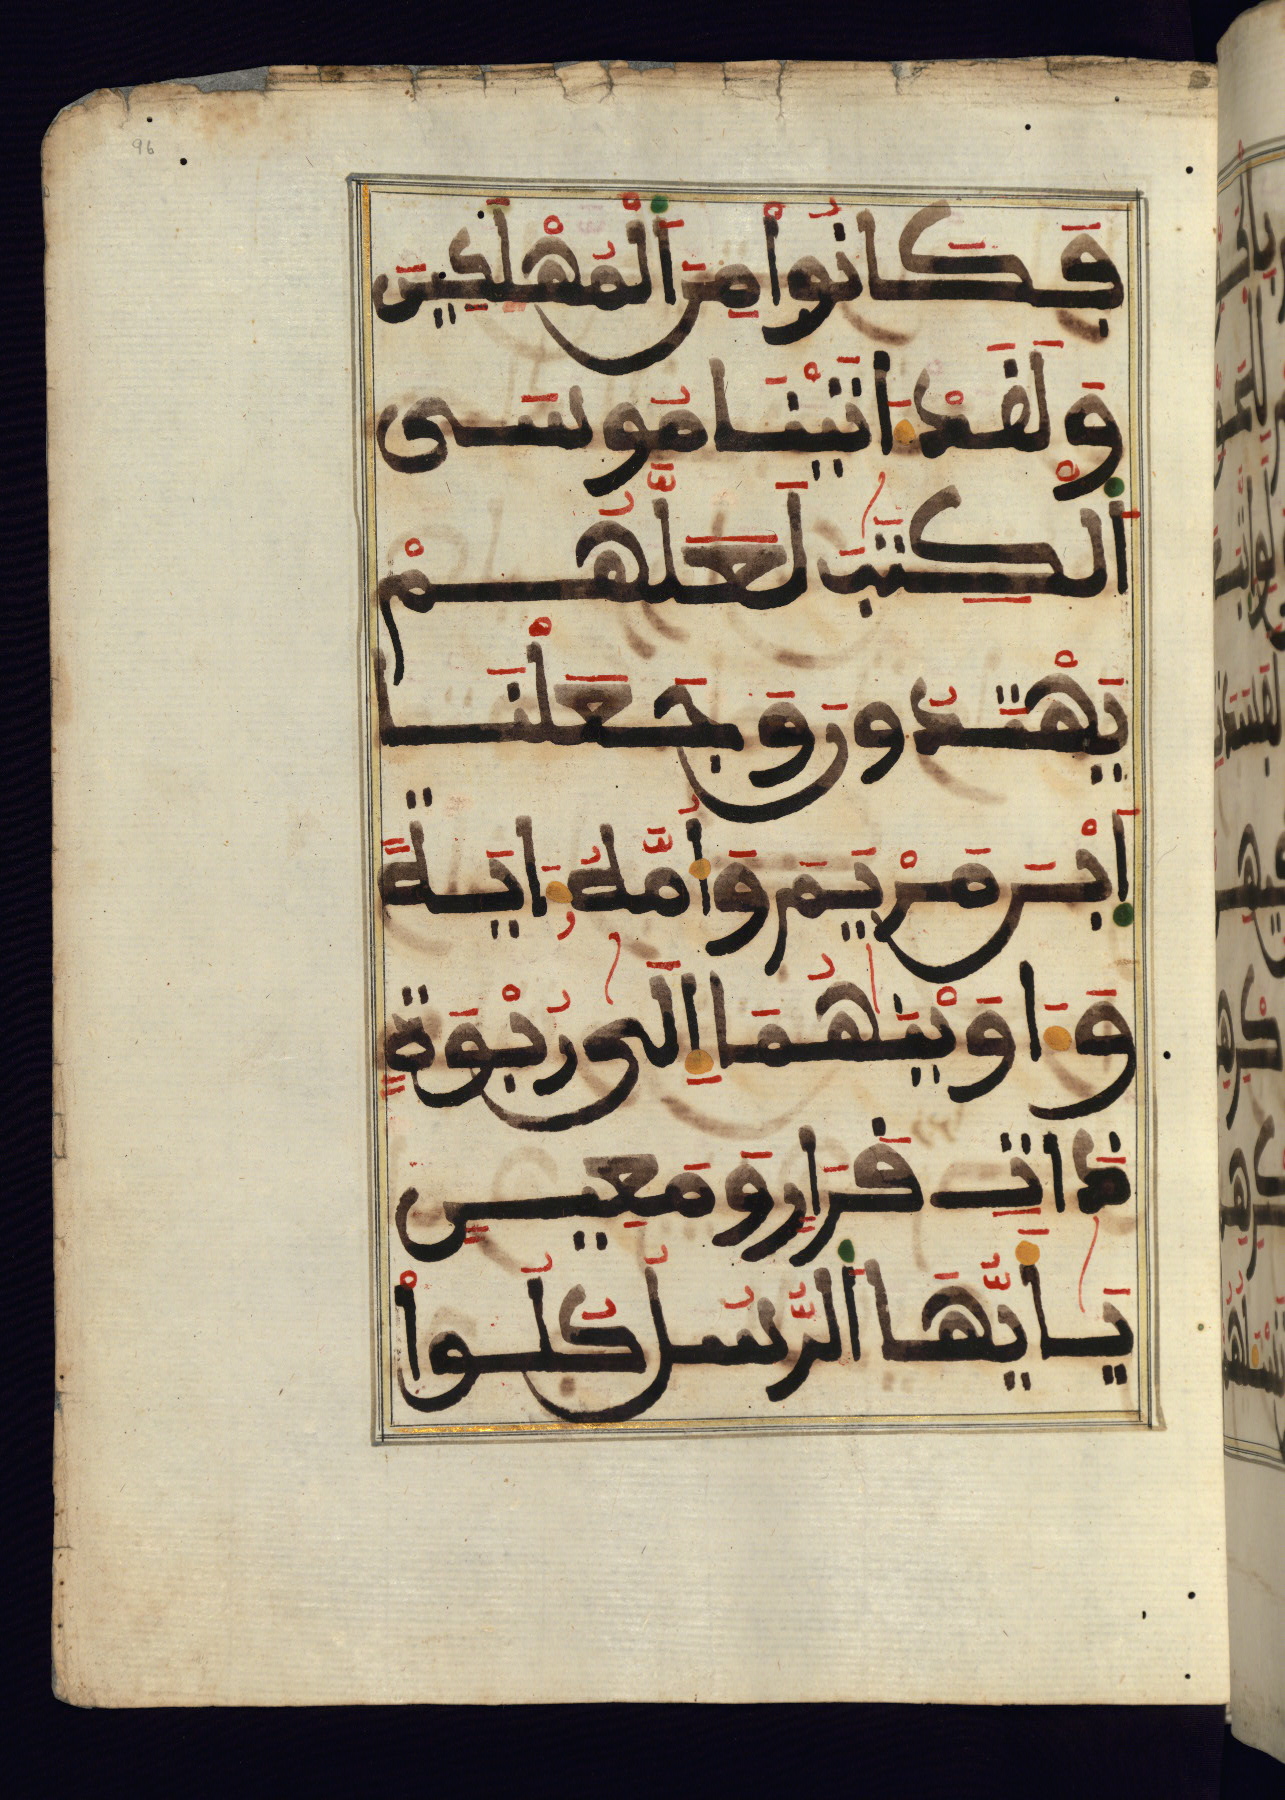 96
فَكَانُواْ مِنَ اَلْمُهْلَكِينَ
وَلَقَدْ ءَاتَيْنَا مُوسَى
اَلْكِتَٰبَ لَعَلَّهُمْ
يَهْتَدُونَ وَجَعَلْنَا
اَبْنَ مَرْيَمَ وَأُمَّهُۥ ءَايَةً
وَءَاوَيْنَٰهُمَا إِلَىٰ رُبْوَةٍ
ذَاتِ قَرَارٍ وَمَعِينٍ
يَٰأَيُّهَا اَلرُّسُلُ كُلُواْ